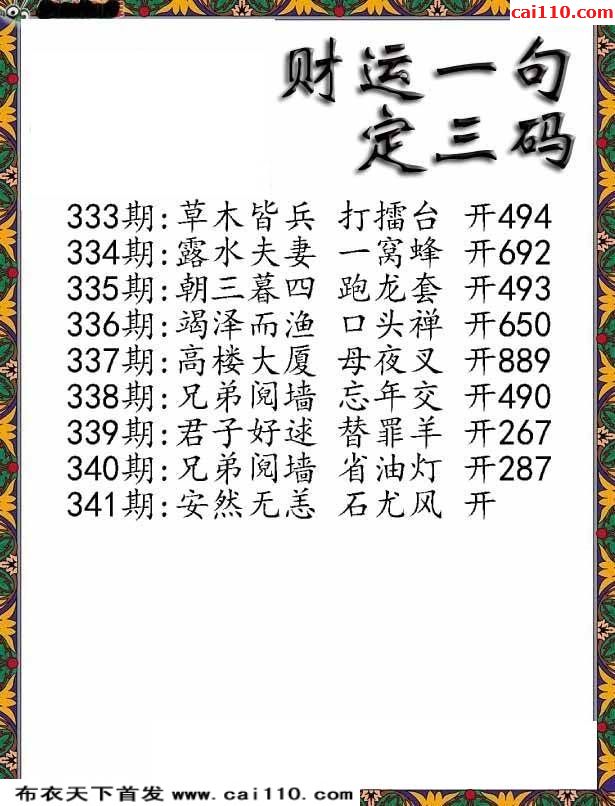 cai110.com
财运一句
定三码
333期:草木皆兵 打擂台 开494
334期:露水夫妻 一窝蜂 开692
335期:朝三暮四 跑龙套 开493
336期:竭泽而渔 口头禅 开650
337期:高楼大厦 母夜叉 开889
338期:兄弟阋墙 忘年交 开490
339期:君子好逑 替罪羊 开267
340期:兄弟阋墙 省油灯 开287
341期:安然无恙 石尤风 开
布衣天下首发 www.cai110.com